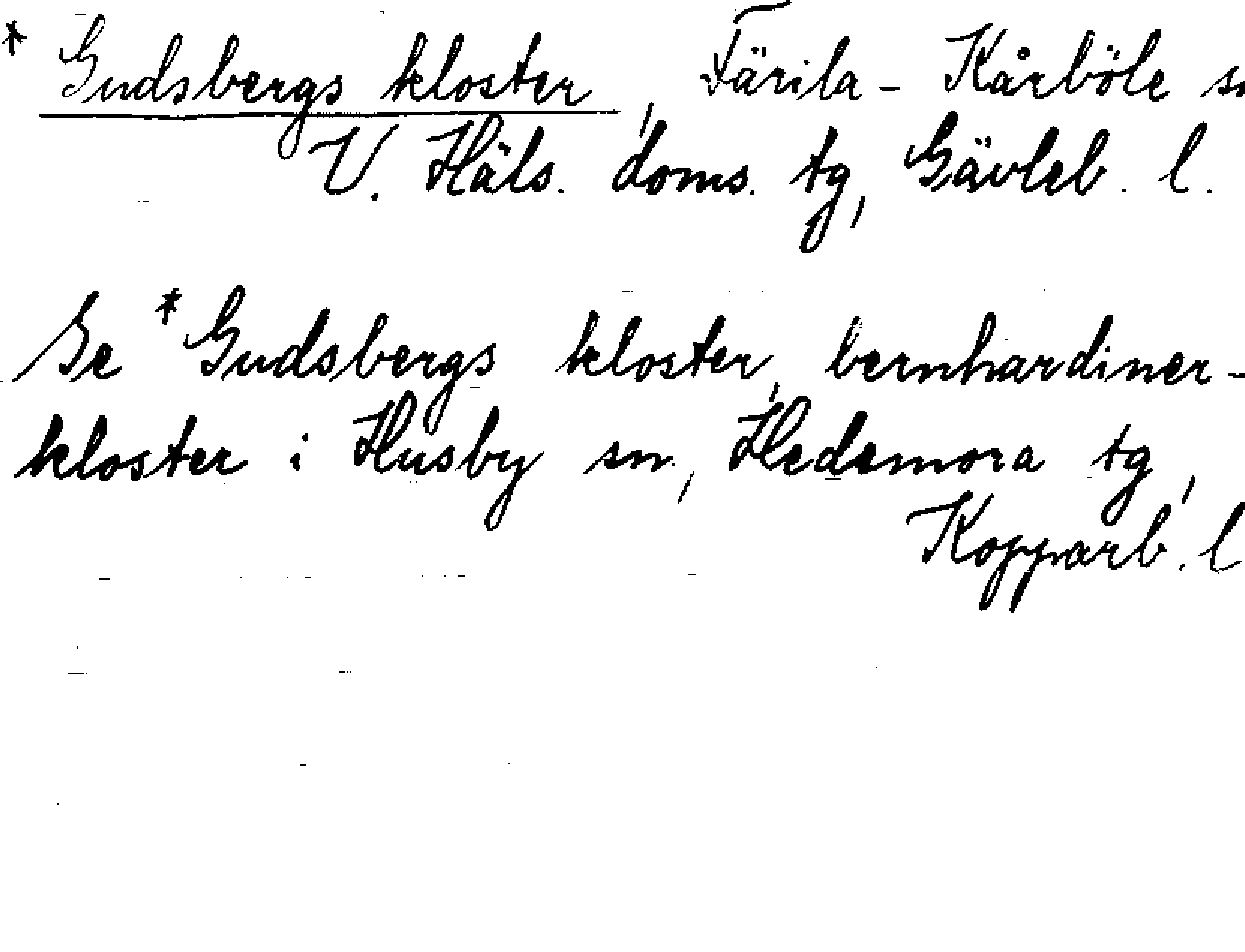 * Gudsbergs kloster, Färila - Kårböle sn
V. Häls. doms. tg, Gävleb. l.
Se *Gudsbergs kloster, bernhardiner-
kloster i Husby sn, Hedemora tg,
Kopparb. l